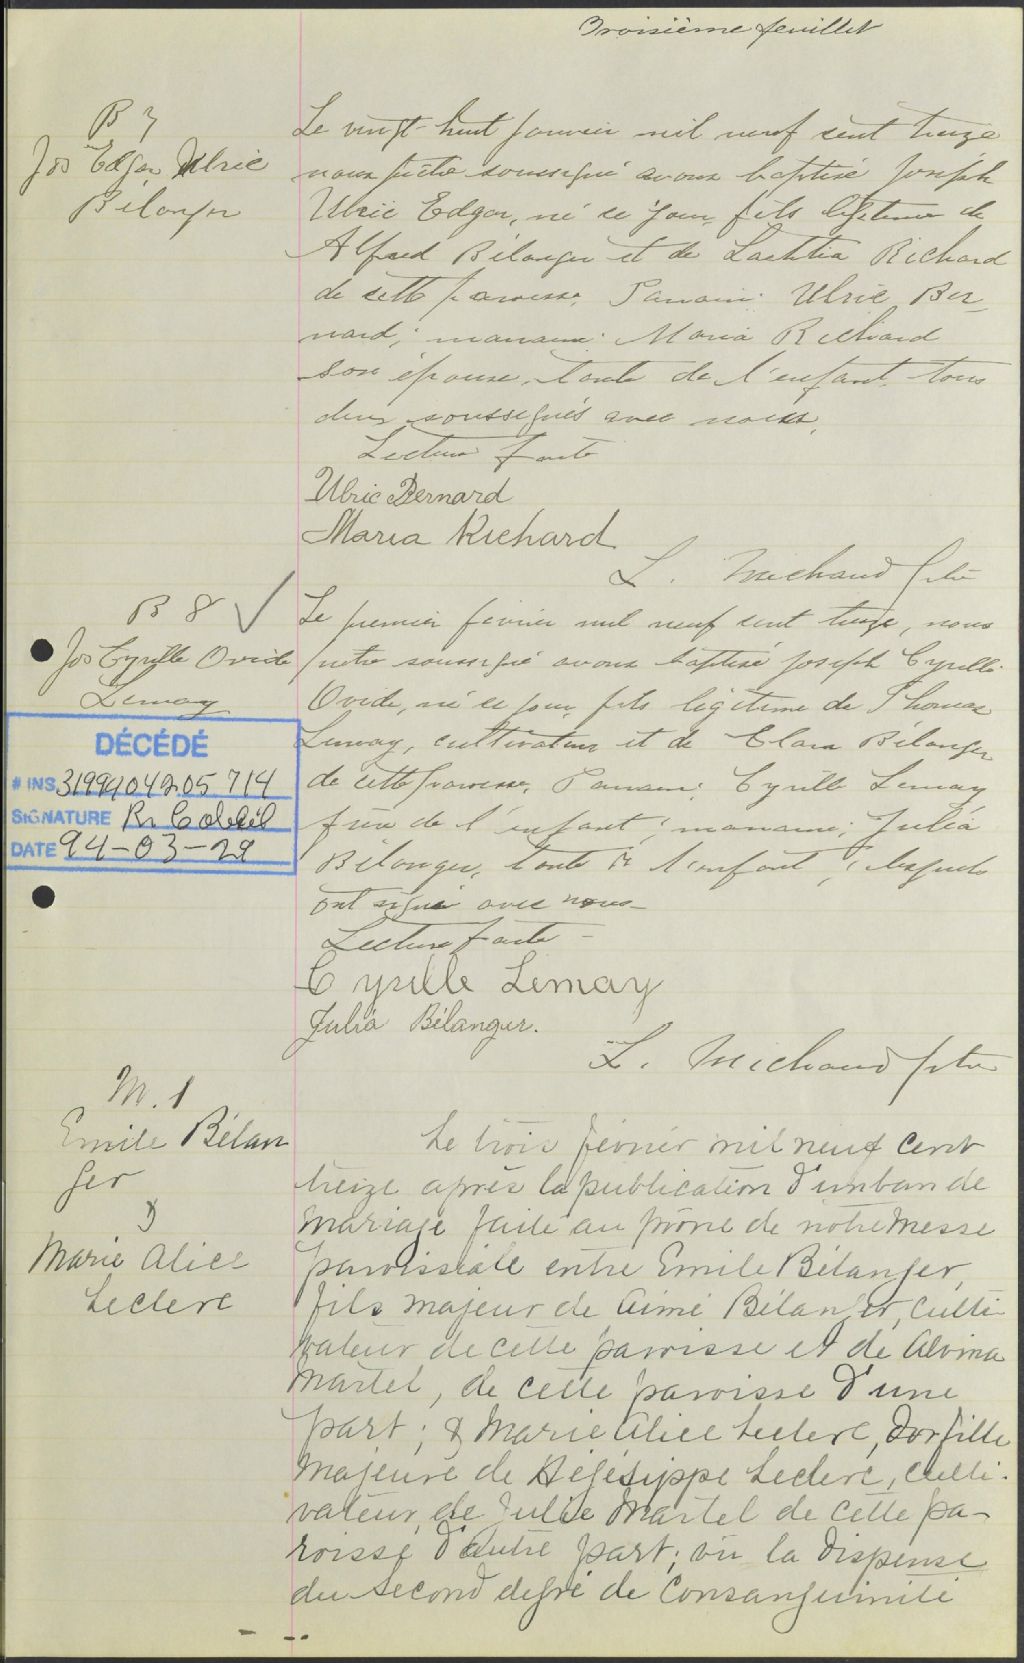 Troisième feuillet
B 7
Jos Edgar Ulric
Bélanger
Le vingt-huit janvier mil neuf cent treize
nous prêtre soussigné avons baptisé Joseph
Ulric Edgar, né ce jour, fils légitime de
Alfred Bélanger et de Laetitia Richard
de cette paroisse. Parrain: Ulric Ber_
nard; marraine: Maria Richard
son épouse, tante de l'enfant, tous
deux soussignés avec nous.
Lecture faite
Ulric Bernard
Maria Richard
L. Michaud ptre
B 8
Jos Cyrille Ovide
Lemay
DÉCÉDÉ
# INS 3199404205714
SIGNATURE
DATE 94-03-29
Le premier février mil neuf cent treize, nous
prêtre soussigné avons baptisé Joseph Cyrille
Ovide, né ce jour, fils légitime de Thomas
Lemay, cultivateur et de Clara Bélanger
de cette paroisse. Parrain: Cyrille Lemay
frère de l'enfant; marraine: Julia
Bélanger, tante de l'enfant, lesquels
ont signé avec nous_
Lecture faite -
Cyrille Lemay
Julia Bélanger.
L. Michaud ptre
M. 1
Emile Bélan
ger
&
Marie Alice
Leclerc
Le trois février mil neuf cent
treize après la publication d'un ban de
mariage faite au prône de notre messe
paroissiale entre Emile Bélanger,
fils majeur de Aimé Bélanger, culti-
vateur de cette paroisse et de Alvina
Martel, de cette paroisse d'une
part; & Marie Alice Leclerc, fille
majeure de Hégésippe Leclerc, culti-
vateur, de Julie Martel de cette pa-
roisse d'autre part; vu la dispense
du second degré de consanguinité